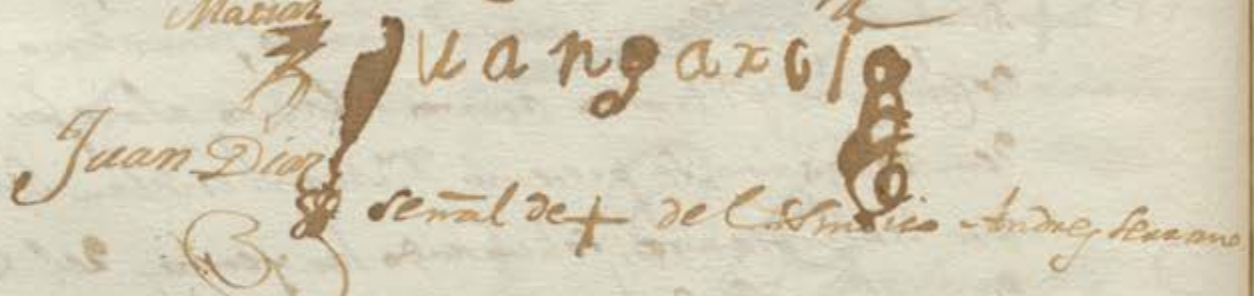 Matias
Juan garcia
Juan Diaz
señal de + del Sindico Andres Serrano